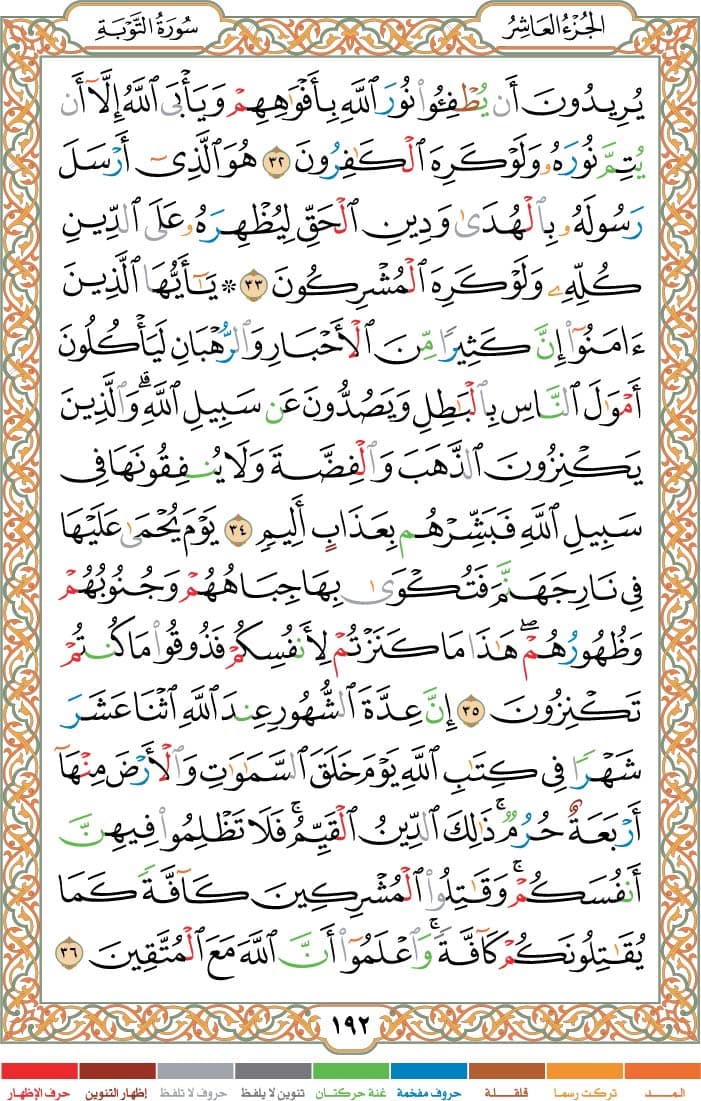 الجُزْءُ العَاشِرُ
سُورَةُ التَّوْبَةِ
يُرِيدُونَ أَن يُطْفِـُٔوا۟ نُورَ ٱللَّهِ بِأَفْوَٰهِهِمْ وَيَأْبَى ٱللَّهُ إِلَّآ أَن
يُتِمَّ نُورَهُۥ وَلَوْ كَرِهَ ٱلْكَـٰفِرُونَ ٣٢ هُوَ ٱلَّذِىٓ أَرْسَلَ
رَسُولَهُۥ بِٱلْهُدَىٰ وَدِينِ ٱلْحَقِّ لِيُظْهِرَهُۥ عَلَى ٱلدِّينِ
كُلِّهِۦ وَلَوْ كَرِهَ ٱلْمُشْرِكُونَ ٣٣ ۞ يَـٰٓأَيُّهَا ٱلَّذِينَ
ءَامَنُوٓا۟ إِنَّ كَثِيرًا مِّنَ ٱلْأَحْبَارِ وَٱلرُّهْبَانِ لَيَأْكُلُونَ
أَمْوَٰلَ ٱلنَّاسِ بِٱلْبَـٰطِلِ وَيَصُدُّونَ عَن سَبِيلِ ٱللَّهِ ۗ وَٱلَّذِينَ
يَكْنِزُونَ ٱلذَّهَبَ وَٱلْفِضَّةَ وَلَا يُنفِقُونَهَا فِى
سَبِيلِ ٱللَّهِ فَبَشِّرْهُم بِعَذَابٍ أَلِيمٍ ٣٤ يَوْمَ يُحْمَىٰ عَلَيْهَا
فِى نَارِ جَهَنَّمَ فَتُكْوَىٰ بِهَا جِبَاهُهُمْ وَجُنُوبُهُمْ
وَظُهُورُهُمْ ۖ هَـٰذَا مَا كَنَزْتُمْ لِأَنفُسِكُمْ فَذُوقُوا۟ مَا كُنتُمْ
تَكْنِزُونَ ٣٥ إِنَّ عِدَّةَ ٱلشُّهُورِ عِندَ ٱللَّهِ ٱثْنَا عَشَرَ
شَهْرًا فِى كِتَـٰبِ ٱللَّهِ يَوْمَ خَلَقَ ٱلسَّمَـٰوَٰتِ وَٱلْأَرْضَ مِنْهَآ
أَرْبَعَةٌ حُرُمٌ ۚ ذَٰلِكَ ٱلدِّينُ ٱلْقَيِّمُ ۚ فَلَا تَظْلِمُوا۟ فِيهِنَّ
أَنفُسَكُمْ ۚ وَقَـٰتِلُوا۟ ٱلْمُشْرِكِينَ كَآفَّةً كَمَا
يُقَـٰتِلُونَكُمْ كَآفَّةً ۚ وَٱعْلَمُوٓا۟ أَنَّ ٱللَّهَ مَعَ ٱلْمُتَّقِينَ ٣٦
١٩٢
المـــد تركت رسما قلقـلة حروف مفخمة غنة حركتان تنوين لا يلفظ حروف لا تلفظ إظهار التنوين حرف الإظهار